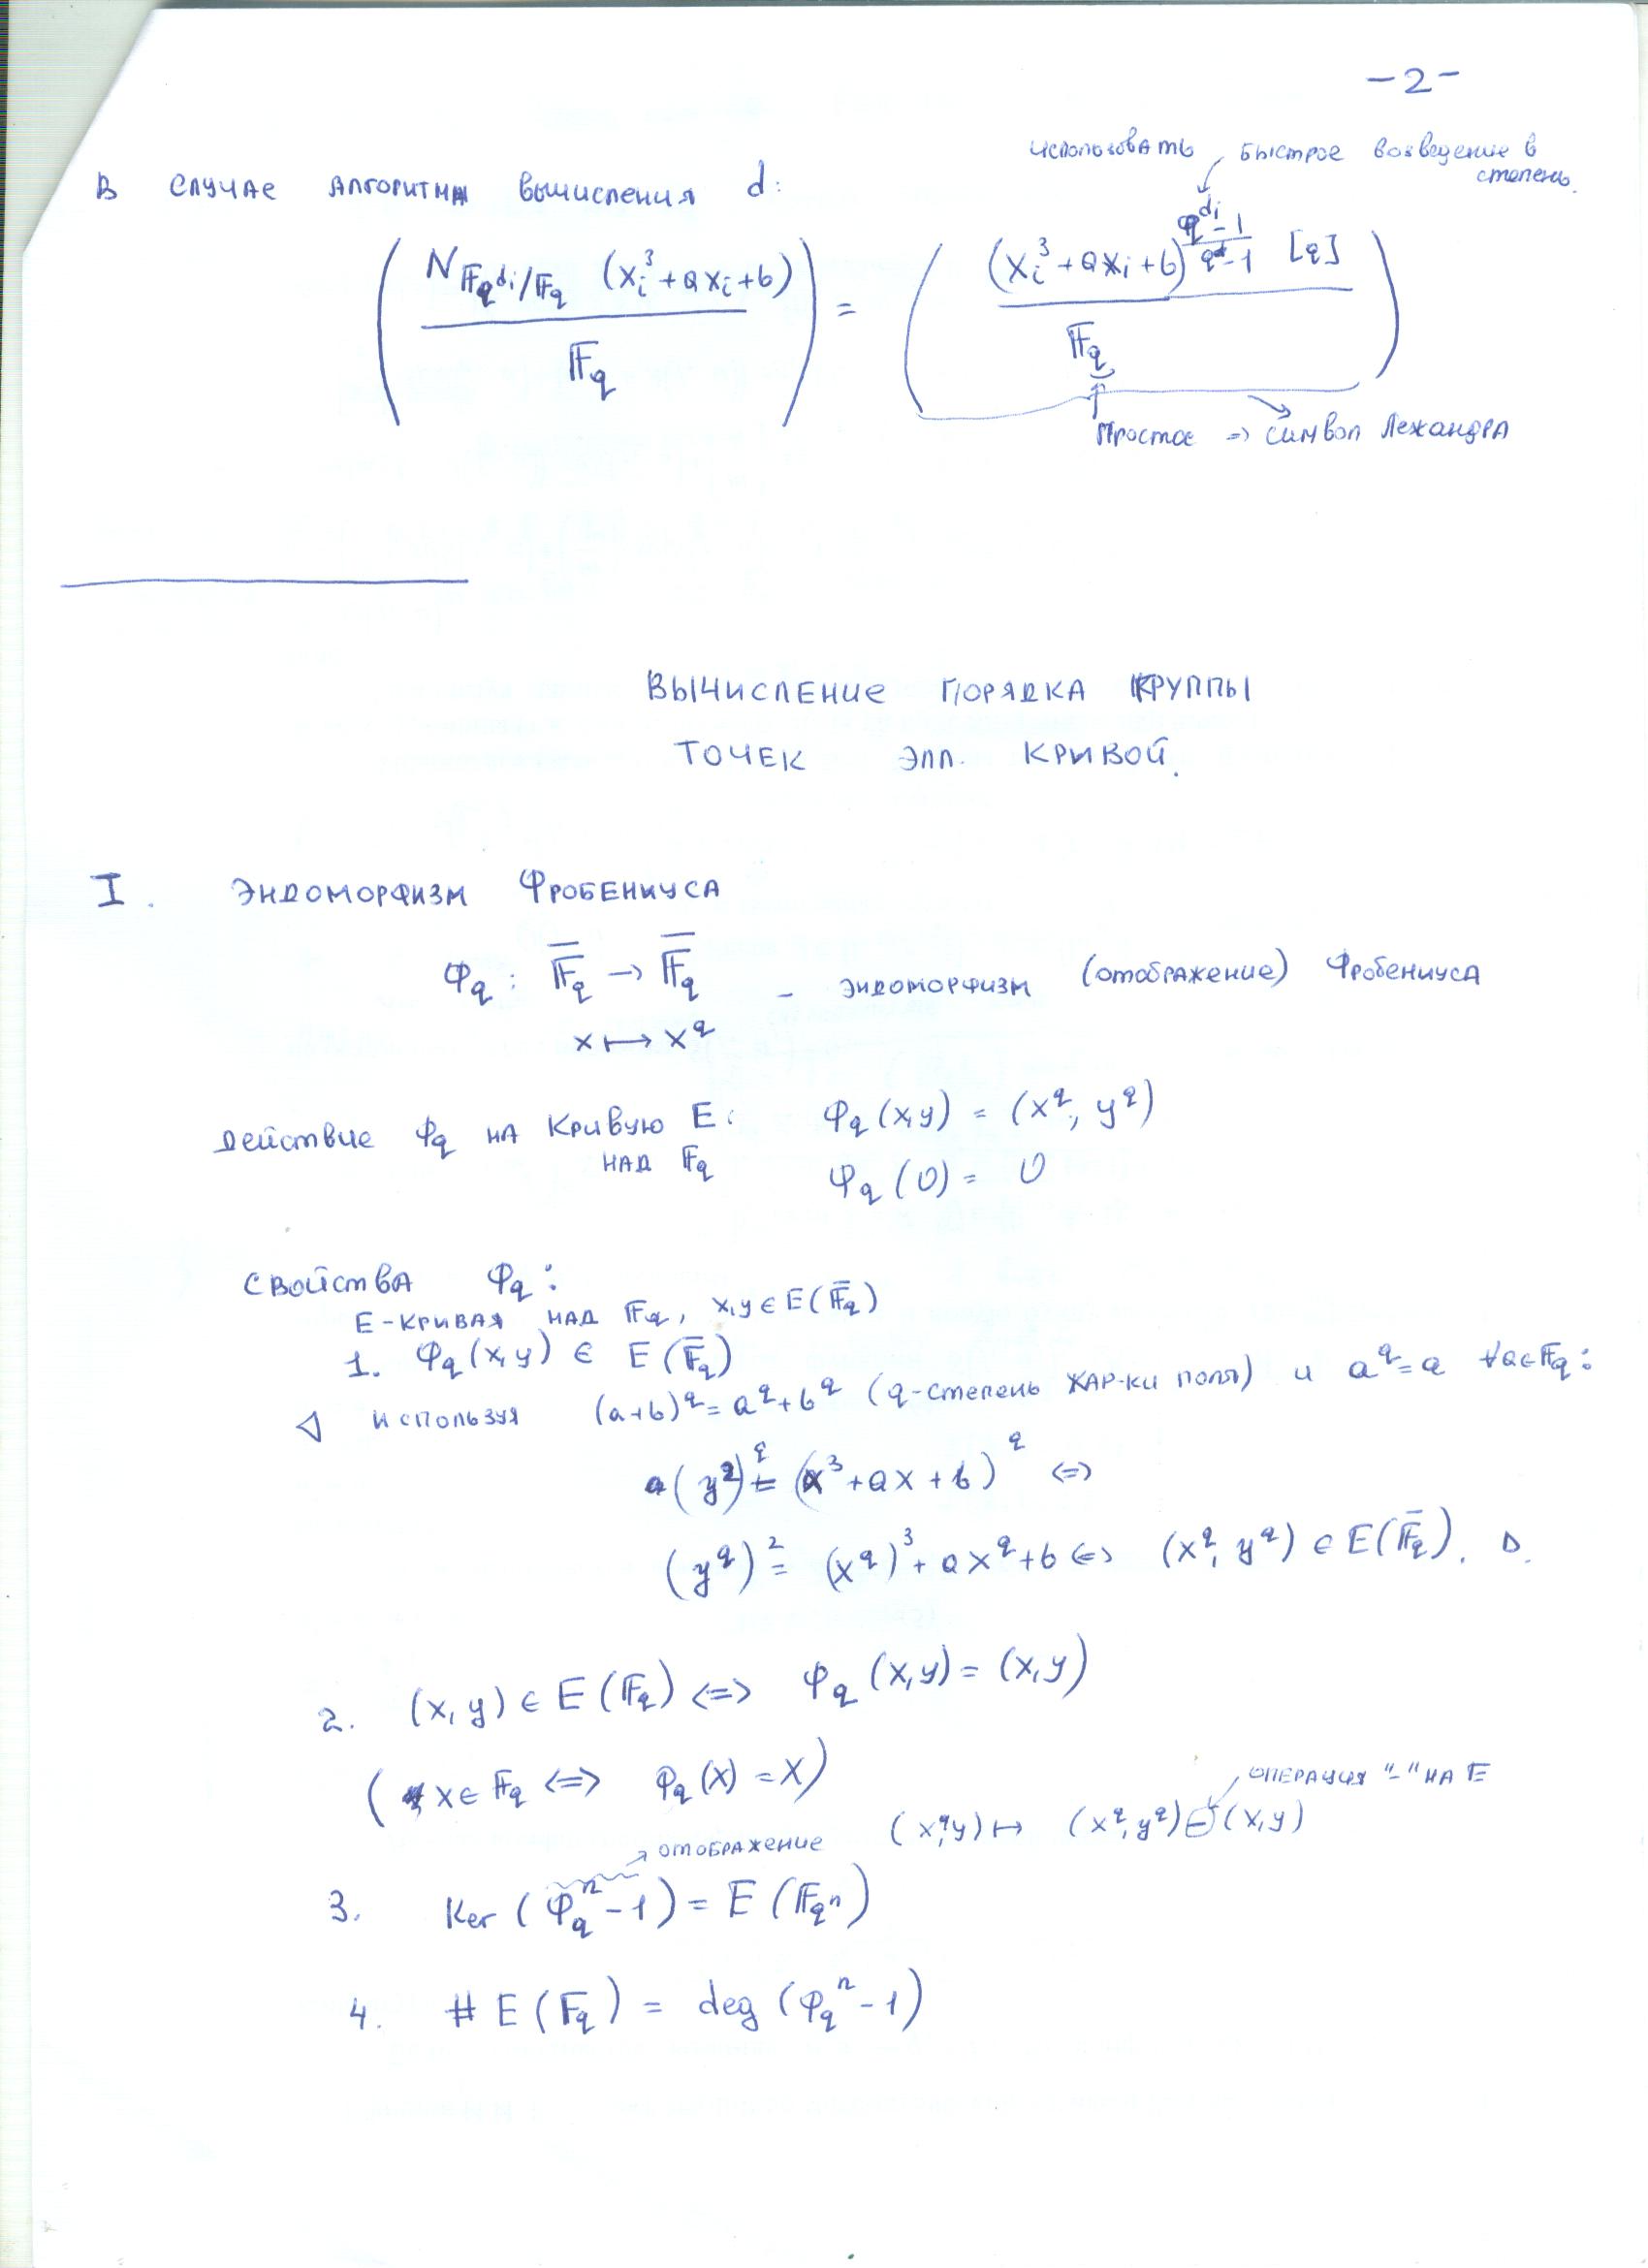 -2-
использовать быстрое возведение в
степень.
В случае алгоритма вычисления d:
( N_{𝔽_{q^{d_i}}/𝔽_q} (x_i^3+ax_i+b) / 𝔽_q ) = ( (x_i^3+ax_i+b)^{(q^{d_i}-1)/(q-1)} [q] / 𝔽_q )
простое ⇒ символ Лежандра
ВЫЧИСЛЕНИЕ ПОРЯДКА ГРУППЫ
ТОЧЕК ЭЛЛ. КРИВОЙ.
I. Эндоморфизм Фробениуса
φ_q : \overline{𝔽}_q → \overline{𝔽}_q - эндоморфизм (отображение) Фробениуса
x ↦ x^q
Действие φ_q на кривую E: φ_q(x,y) = (x^q, y^q)
над 𝔽_q φ_q(O) = O
Свойства φ_q:
E-кривая над 𝔽_q, x,y ∈ E(\overline{𝔽}_q)
1. φ_q(x,y) ∈ E(\overline{𝔽}_q)
◁ используя (a+b)^q = a^q + b^q (q-степень хар-ки поля) и a^q = a ∀a∈𝔽_q:
(y^2)^q = (x^3+ax+b)^q ⇔
(y^q)^2 = (x^q)^3 + ax^q + b ⇔ (x^q, y^q) ∈ E(\overline{𝔽}_q). ▷.
2. (x,y) ∈ E(𝔽_q) ⇔ φ_q(x,y) = (x,y)
(x ∈ 𝔽_q ⇔ φ_q(x) = x)
операция "-" на E
отображение (x,y) ↦ (x^q, y^q) ⊖ (x,y)
3. Ker(φ_q^n - 1) = E(𝔽_{q^n})
4. # E(𝔽_q) = deg(φ_q^n - 1)